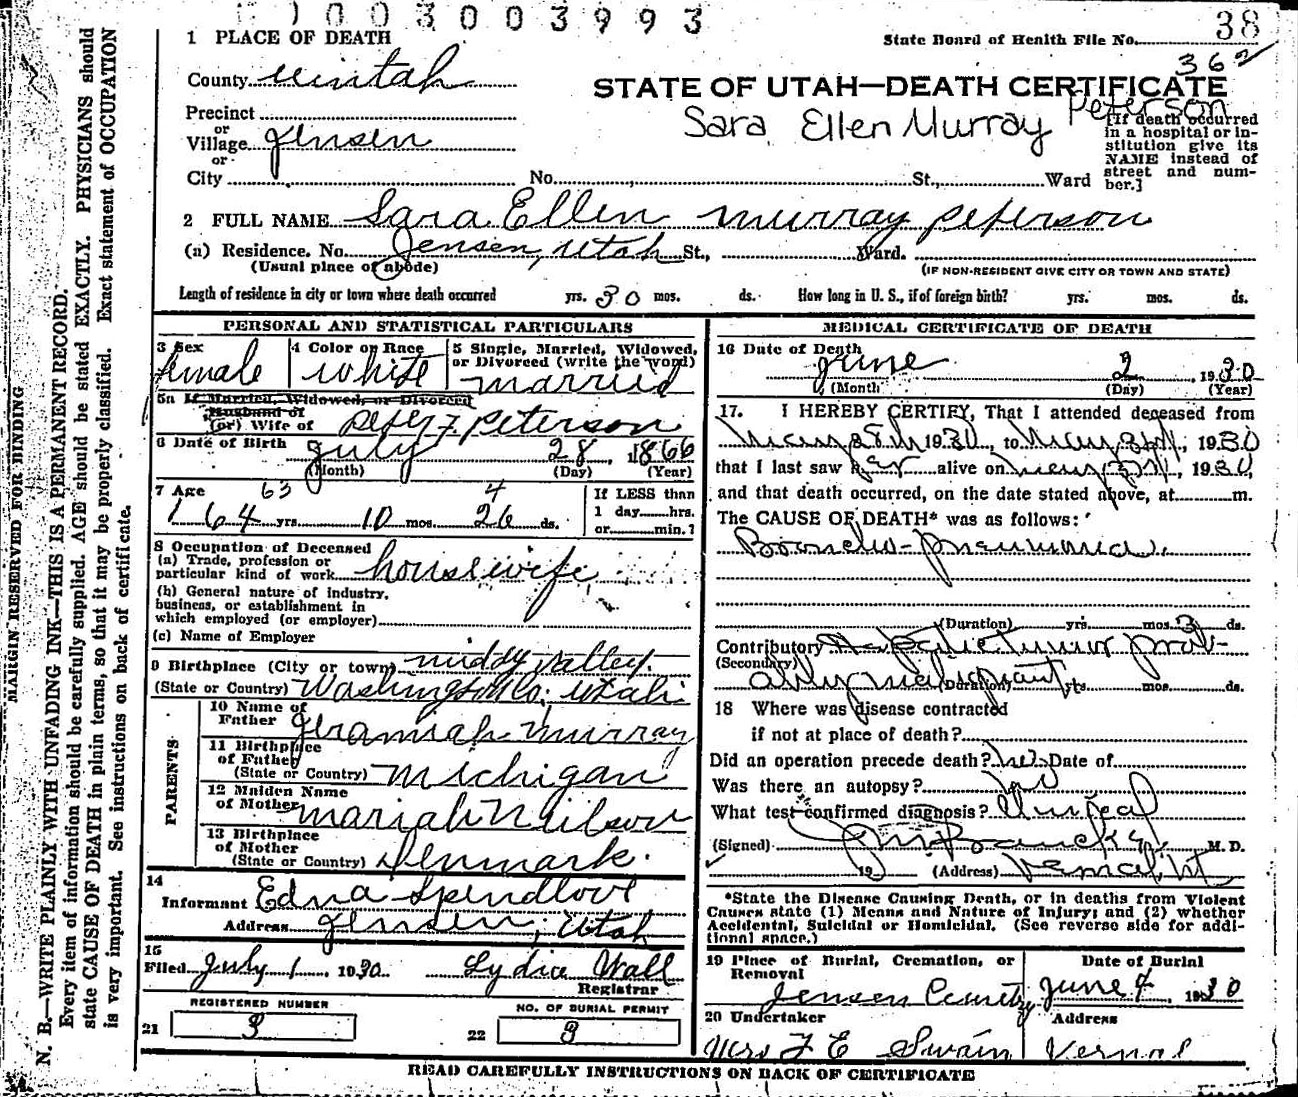 1003003993
38
State Board of Health File No.
362
1 PLACE OF DEATH
County Uintah
STATE OF UTAH—DEATH CERTIFICATE
Precinct
or
Village Jensen
or
City
No. St., Ward
Sara Ellen Murray Peterson
[If death occurred in a hospital or institution give its NAME instead of street and number.]
2 FULL NAME Sara Ellen Murray Peterson
(a) Residence. No. Jensen, Utah St., Ward.
(Usual place of abode)
(IF NON-RESIDENT GIVE CITY OR TOWN AND STATE)
Length of residence in city or town where death occurred yrs. 30 mos. ds. How long in U. S., if of foreign birth? yrs. mos. ds.
PERSONAL AND STATISTICAL PARTICULARS
3 Sex
female
4 Color or Race
White
5 Single, Married, Widowed, or Divorced (write the word)
married
5a If Married, Widowed, or Divorced
Husband of
(or) Wife of Peter F. Peterson
6 Date of Birth
July 28, 1866
(Month) (Day) (Year)
7 Age
63 4
64 yrs. 10 mos. 26 ds.
If LESS than
1 day hrs.
or min.?
8 Occupation of Deceased
(a) Trade, profession or
particular kind of work housewife
(b) General nature of industry,
business, or establishment in
which employed (or employer)
(c) Name of Employer
9 Birthplace (City or town) muddy valley.
(State or Country) Washington Co; Utah
PARENTS
10 Name of Father Jeramiah Murray
11 Birthplace of Father
(State or Country) Michigan
12 Maiden Name of Mother Mariah Neilson
13 Birthplace of Mother
(State or Country) Denmark.
14
Informant Edna Spendlove
Address Jensen, Utah
15
Filed July 1 1930 Lydia Wall
Registrar
REGISTERED NUMBER
21 3
NO. OF BURIAL PERMIT
22 3
MEDICAL CERTIFICATE OF DEATH
16 Date of Death
June 2, 1930
(Month) (Day) (Year)
17. I HEREBY CERTIFY, That I attended deceased from
1930, to 1930
that I last saw her alive on 1930,
and that death occurred, on the date stated above, at m.
The CAUSE OF DEATH* was as follows:
Broncho-pneumonia.
(Duration) yrs. mos. 3 ds.
Contributory Hepatic tumor prob-
(Secondary)
ably malignant
(Duration) yrs. mos. ds.
18 Where was disease contracted
if not at place of death?
Did an operation precede death? No Date of
Was there an autopsy? No
What test confirmed diagnosis? Clinical
(Signed) M. D.
19 (Address) Vernal, Ut
*State the Disease Causing Death, or in deaths from Violent
Causes state (1) Means and Nature of Injury; and (2) whether
Accidental, Suicidal or Homicidal. (See reverse side for addi-
tional space.)
19 Place of Burial, Cremation, or Removal
Jensen Cemetry
Date of Burial
June 4, 1930
20 Undertaker
Mrs F E Swain
Address
Vernal
READ CAREFULLY INSTRUCTIONS ON BACK OF CERTIFICATE
MARGIN RESERVED FOR BINDING
N. B.—WRITE PLAINLY WITH UNFADING INK—THIS IS A PERMANENT RECORD.
Every item of information should be carefully supplied. AGE should be stated EXACTLY. PHYSICIANS should
state CAUSE OF DEATH in plain terms, so that it may be properly classified. Exact statement of OCCUPATION
is very important. See instructions on back of certificate.